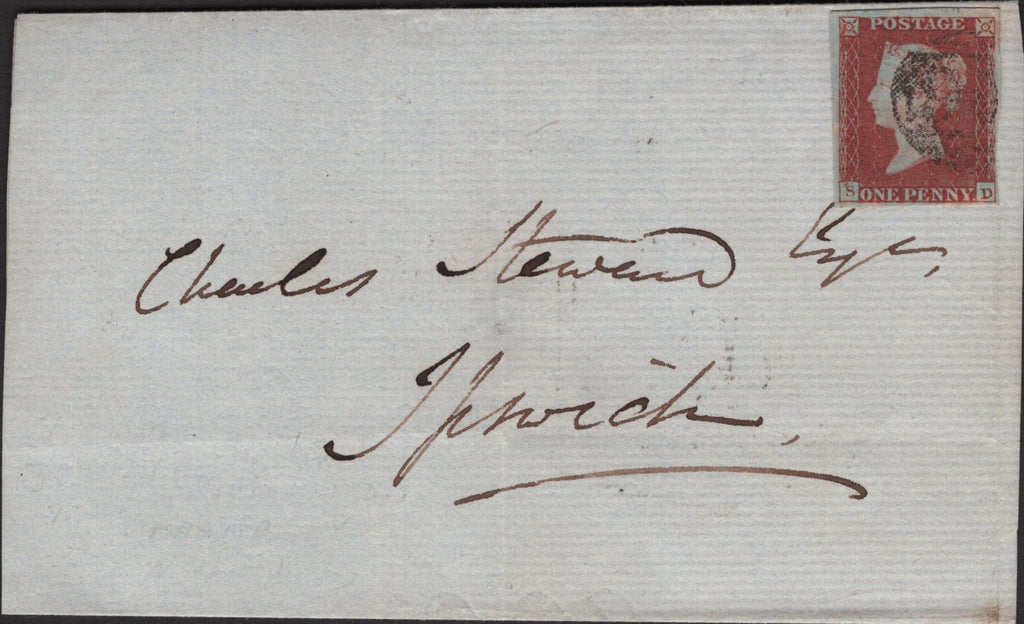 POSTAGE
S ONE PENNY. D
Charles Steward Esqr,
Ipswich,